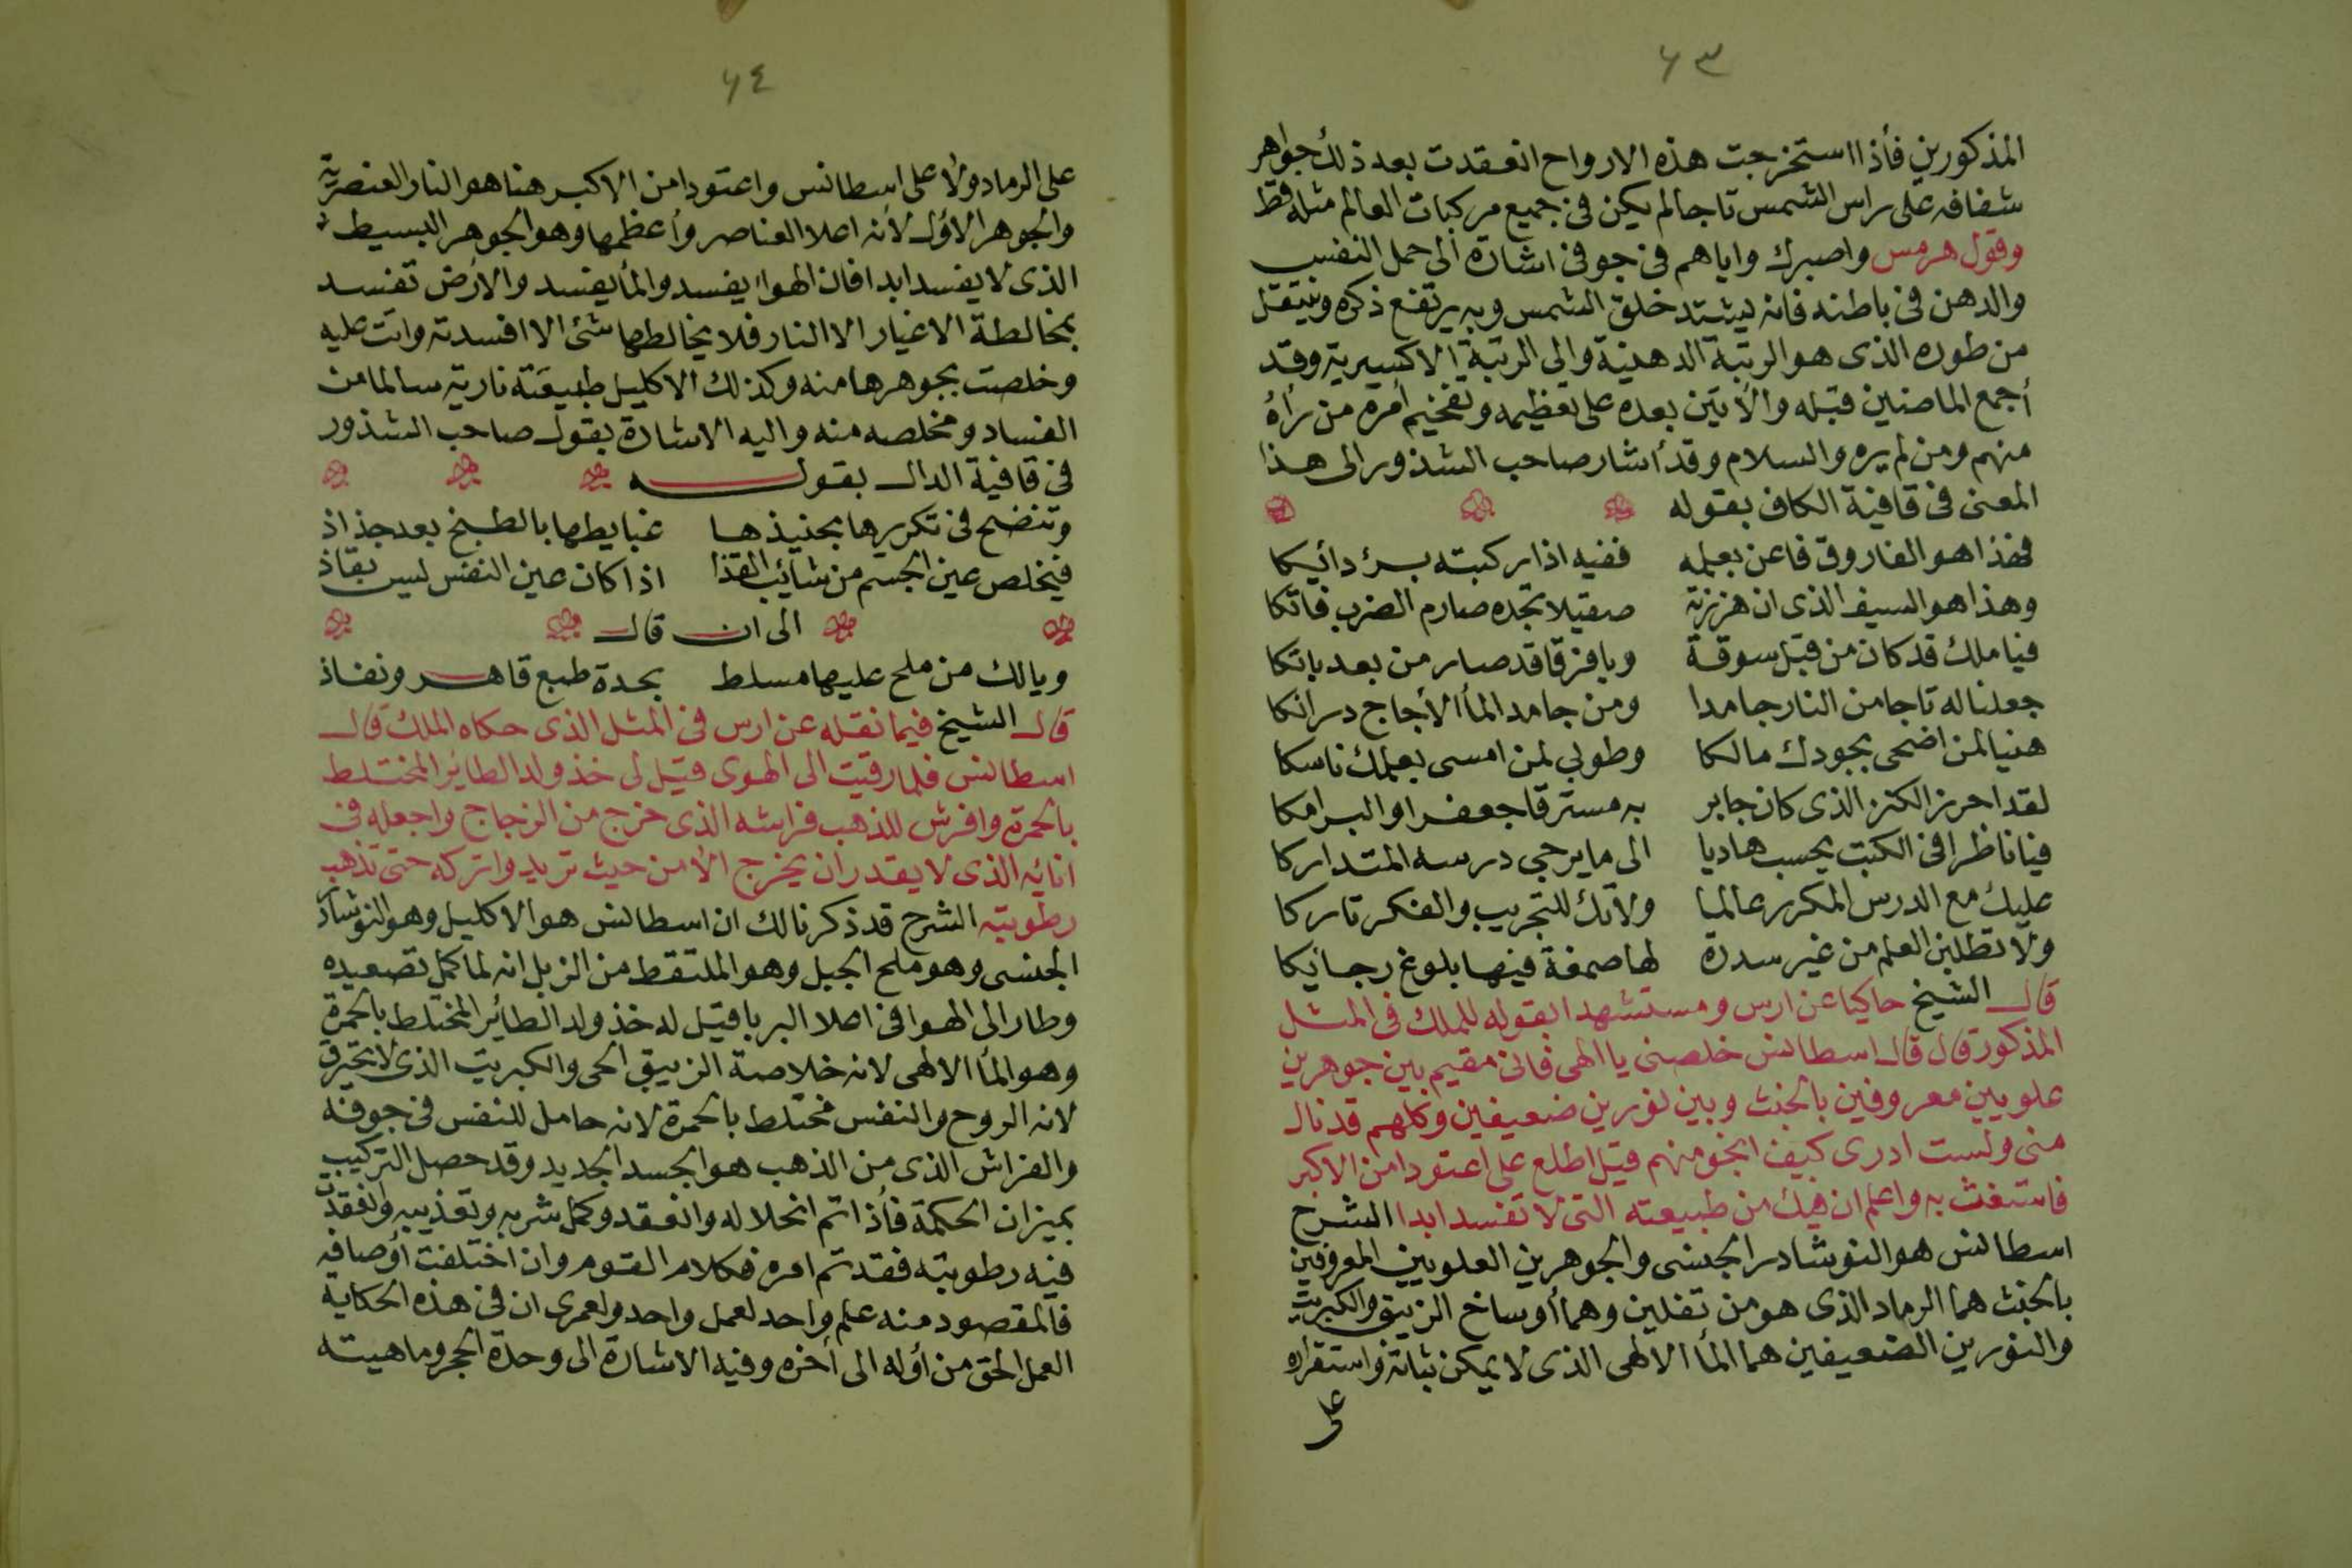 ٦٣
المذكورين فأذا استخرجت هذه الارواح انعقدت بعد ذلك جواهر
شفافه على راس الشمس تاجا لم يكن فى جميع مركبات العالم مثله قط
وقول هرمس واصبرك واياهم فى جوفى اشارة الى حمل النفس
والدهن فى باطنه فانه ليشتد خلق الشمس وبه يرتفع ذكره وينتقل
من طوره الذى هو الرتبة الدهنية والى الرتبة الاكسيرية وقد
أجمع الماضين قبله والأتين بعده على تعظيمه وتفخيم أمره من رأه
منهم ومن لم يره والسلام وقد أشار صاحب الشذور الى هذا
المعنى فى قافية الكاف بقوله
فهذا هو الفاروق فاعن بعلمه ففيه اذا ركبته برؤ دائيكا
وهذا هو السيف الذى ان هززته صقيلا تجده صارم الضرب فاتكا
فيا ملك قد كان من قبل سوقة ويا فرقا قد صار من بعد باتكا
جعلنا له تاجا من النار جامدا ومن جامد المأ الأجاج درانكا
هنيا لمن اضحى بجودك مالكا وطوبي لمن امسى بعلمك ناسكا
لقد احرز الكنز الذى كان جابر به مسترقا جعفرا والبرامكا
فيا ناظرا فى الكتب يحسب هاديا الى ما يرجى درسه المتداركا
عليك مع الدرس المكرر عالما ولا تك للتجريب والفكر تاركا
ولا تطلبن العلم من غير سدرة لها صمغة فيها بلوغ رجائيكا
قال الشيخ حاكيا عن ارس ومستشهدا بقوله للملك فى المثل
المذكور قال قال اسطالس خلصنى يا الهى فانى مقيم بين جوهرين
علويين معروفين بالخبث وبين نورين ضعيفين وكلهم قد نال
منى ولست ادرى كيف انجو منهم قيل اطلع على اعتودا من الاكبر
فاستغث به واعلم ان فيك من طبيعته التى لا تفسد ابدا الشرح
اسطالس هو النوشادر الجبسى والجوهرين العلويين المعروفين
بالخبث هما الرماد الذى هو من تفلين وهما أوساخ الزيبق والكبريت
والنورين الضعيفين هما المأ الالهى الذى لا يمكن ثباته واستقراره
على
٦٤
على الرماد ولا على اسطانس واعتودا من الاكبر هنا هو النار العنصرية
والجوهر الأول لأنه اعلا العناصر وأعظمها وهو الجوهر البسيط
الذى لا يفسد ابدا فان الهوا يفسد والمأ يفسد والارض تفسد
بمخالطة الاغيار الا النار فلا يخالطها شئ الا افسدته واتت عليه
وخلصت بجوهرها منه وكذلك الاكليل طبيعته نارية سالما من
الفساد ومخلصه منه واليه الاشارة بقول صاحب الشذور
فى قافية الدال بقوله
وتنضح فى تكريرها بجنيذها غبايطها بالطبخ بعد جذاذ
فيخلص عين الجسم من شائب القذا اذا كان عين النفس ليس بقاذ
الى ان قال
ويالك من ملح عليها مسلط بحدة طبع قاهر ونفاذ
قال الشيخ فيما نقله عن ارس فى المثل الذى حكاه الملك قال
اسطالس فلما رقيت الى الهوى قيل لى خذ ولد الطائر المختلط
بالحمرة وافرش للذهب فراشه الذى خرج من الزجاج واجعله فى
انائه الذى لا يقدر ان يخرج الا من حيث تريد واتركه حتى تذهب
رطوبته الشرح قد ذكرنا لك ان اسطالس هو الاكليل وهو النوشادر
الجبسى وهو ملح الجبل وهو الملتقط من الزبل انه لما كمل تصعيده
وطار الى الهوا فى اعلا البربا قيل له خذ ولد الطائر المختلط بالحمرة
وهو المأ الالهى لانه خلاصة الزيبق الحى والكبريت الذى لا يحترق
لانه الروح والنفس مختلط بالحمرة لانه حامل للنفس فى جوفه
والفراش الذى من الذهب هو الجسد الجديد وقد حصل التركيب
بميزان الحكمة فأذا تم انحلاله وانعقد وكمل شربه وتعذيبه وانعقدت
فيه رطوبته فقد تم امره فكلام القوم وان اختلفت أوصافه
فالمقصود منه علم واحد لعمل واحد ولعمرى ان فى هذه الحكاية
العمل الحق من أوله الى أخره وفيه الاشارة الى وحدة الحجر وماهيته